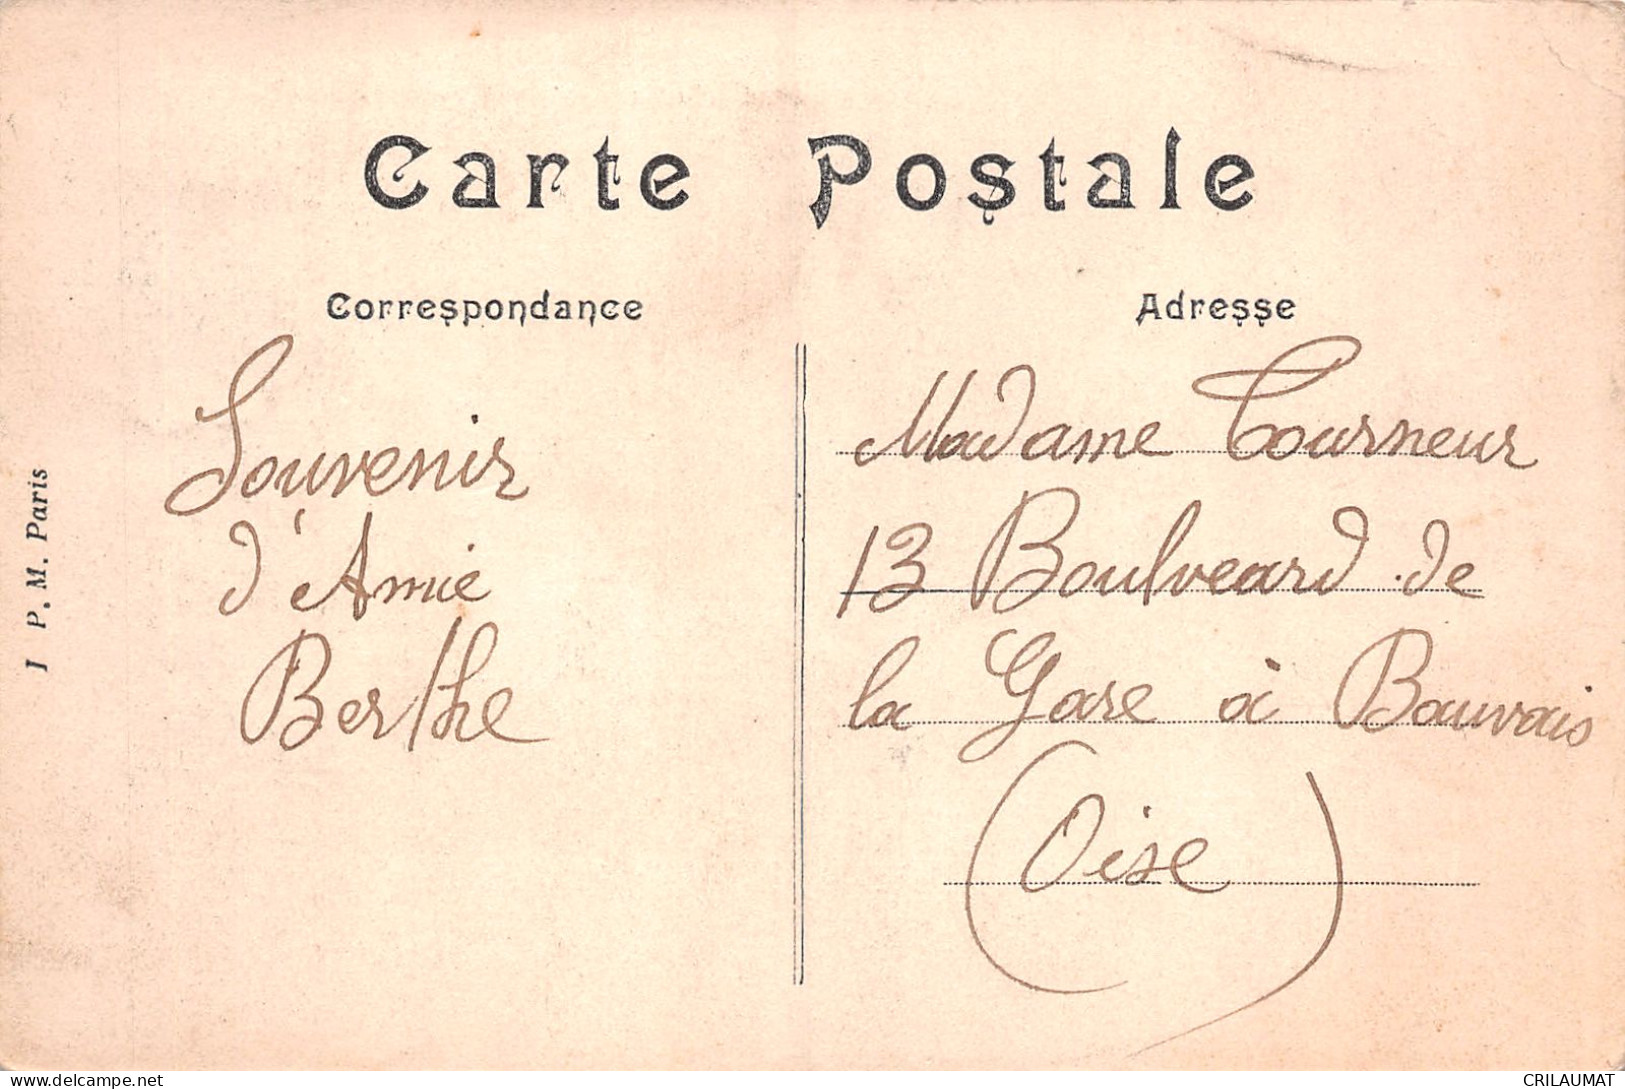 Carte Postale
Correspondance
Souvenir
d'Amie
Berthe
Adresse
Madame Tourneur
13 Boulveard de
la Gare à Bauvais
(Oise)
I P. M. Paris
delcampe.net
CRILAUMAT